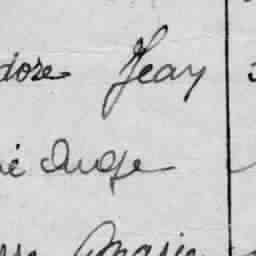 dore Jean
é Ange
Marie